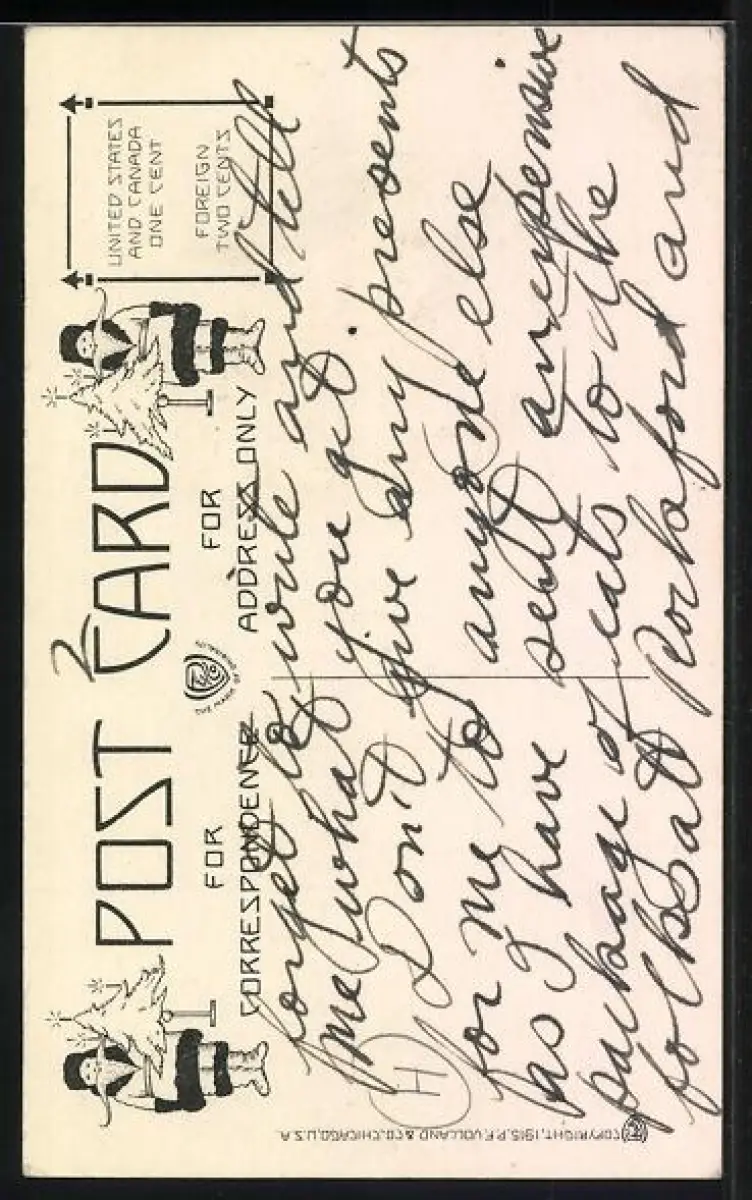 2
POST CARD
UNITED STATES
AND CANADA
ONE CENT
FOREIGN
TWO CENTS
FOR
CORRESPONDENCE
FOR
ADDRESS ONLY
forget to write and tell
me what you get.
Don't give any presents
for me to anyone else
as I have sent an expensive
package of eats to the
folks at Rockaford and
H
COPYRIGHT, 1915, P.F. VOLLAND & CO. CHICAGO, U.S.A.